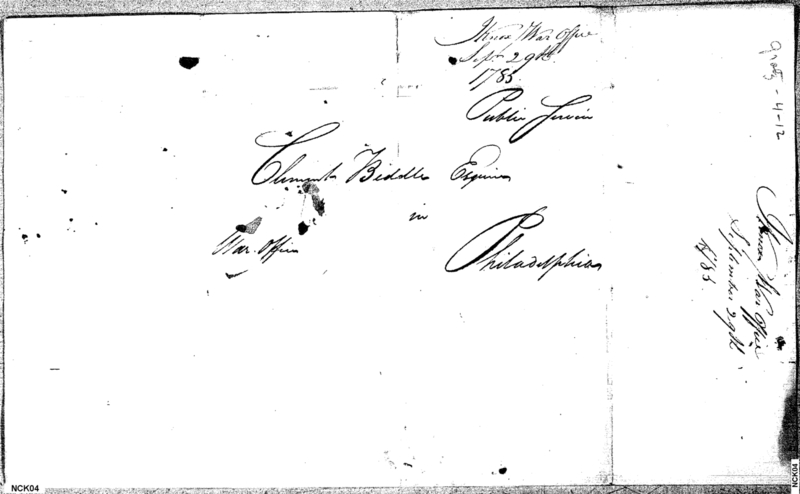 HKnox War Office
Septr 29th
1785
Public Service
Clement Biddle Esquire
in
War Office
Philadelphia
Gratz - 4-12
HKnox War Office
September 29th
1785
NCK04
NCK04